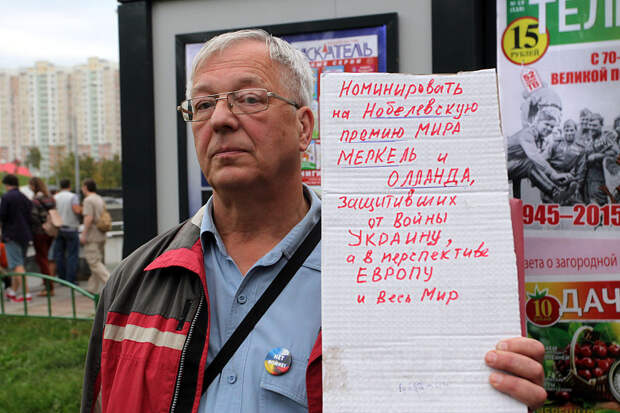 ИСКАТЕЛЬ
Номинировать
на Нобелевскую
премию МИРА
МЕРКЕЛЬ и
ОЛЛАНДА,
защитивших
от войны
УКРАИНУ,
а в перспективе
ЕВРОПУ
и весь Мир
НЕТ
ВОЙНЕ!
15
РУБЛЕЙ
ТЕЛ
С 70-
ВЕЛИКОЙ П
945-2015
зета о загородной
10
ДАЧ